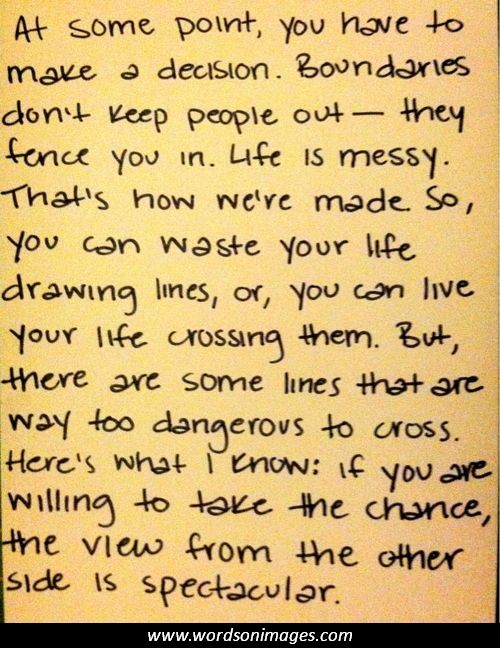 At some point, you have to
make a decision. Boundaries
don't keep people out — they
fence you in. Life is messy.
That's how we're made. So,
you can waste your life
drawing lines, or, you can live
your life crossing them. But,
there are some lines that are
way too dangerous to cross.
Here's what I know: if you are
willing to take the chance,
the view from the other
side is spectacular.
www.wordsonimages.com